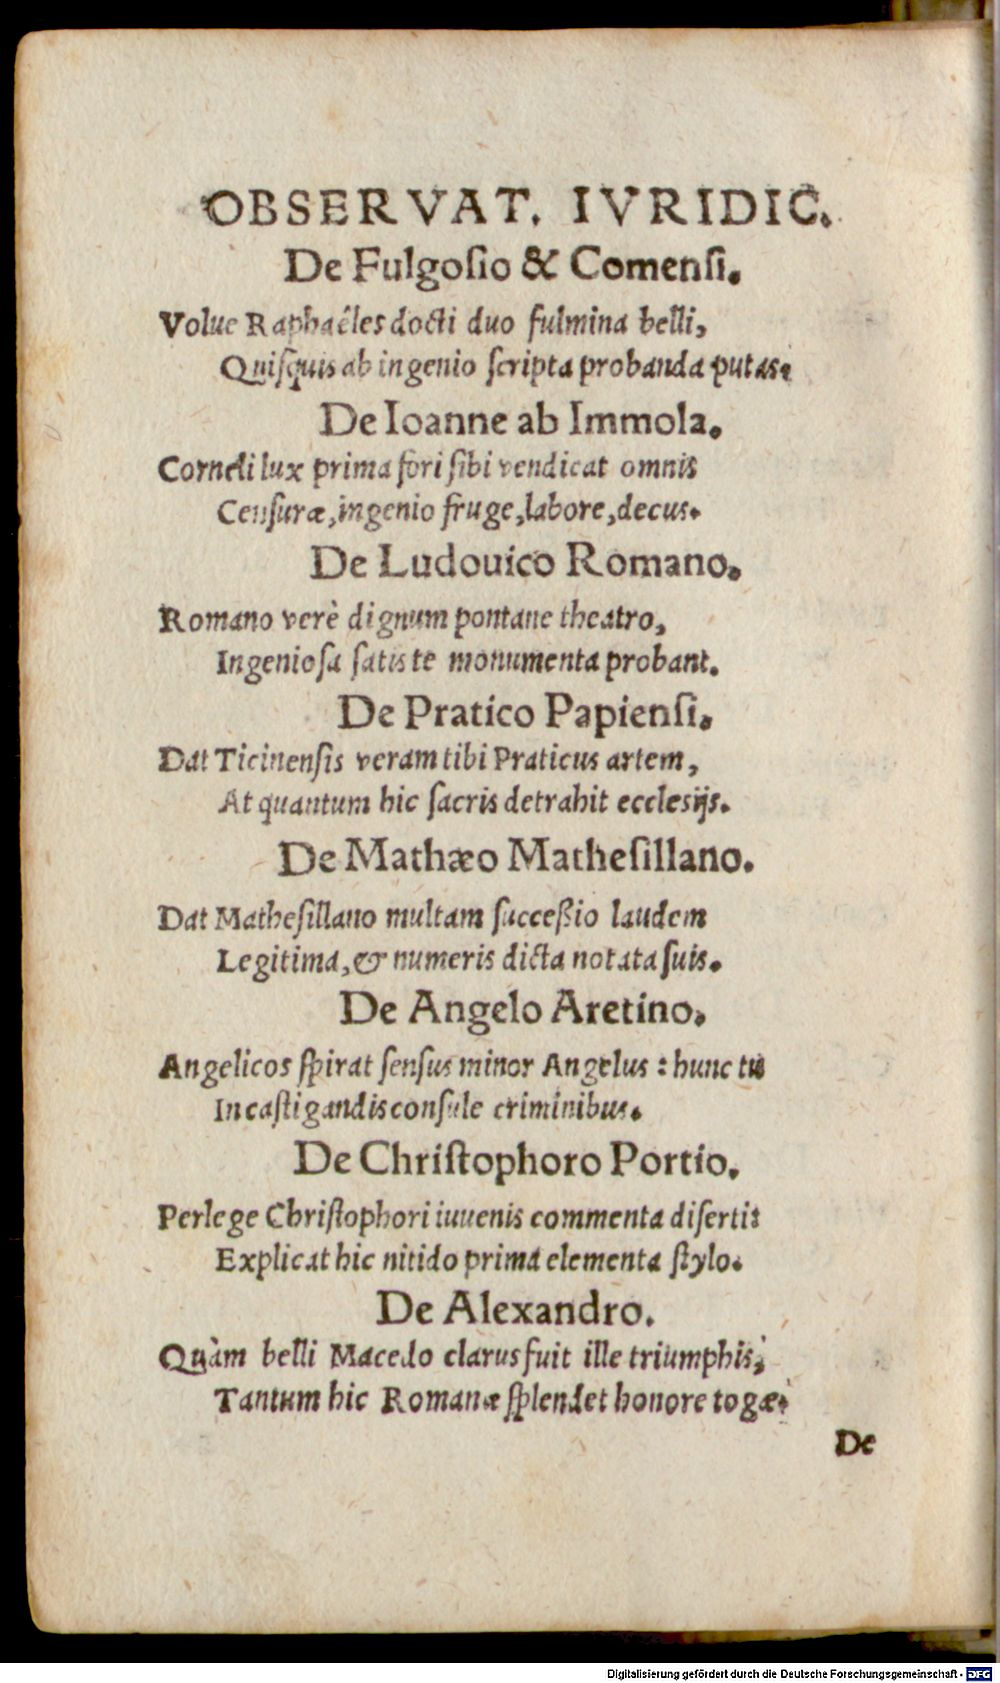 OBSERVAT. IVRIDIC.
De Fulgoſio & Comenſi.
Volue Raphaëles docti duo fulmina belli,
Quiſquis ab ingenio ſcripta probanda putas.
De Ioanne ab Immola.
Corneli lux prima fori ſibi vendicat omnis
Cenſuræ, ingenio fruge, labore, decus.
De Ludouico Romano.
Romano verè dignum pontane theatro,
Ingenioſa ſatis te monumenta probant.
De Pratico Papienſi.
Dat Ticinenſis veram tibi Praticus artem,
At quantum hic ſacris detrahit ecclesijs.
De Mathæo Matheſillano.
Dat Matheſillano multam ſucceßio laudem
Legitima, & numeris dicta notata ſuis.
De Angelo Aretino.
Angelicos ſpirat ſenſus minor Angelus: hunc tu
In caſtigandis conſule criminibus.
De Chriſtophoro Portio.
Perlege Chriſtophori iuuenis commenta diſerti:
Explicat hic nitido prima elementa ſtylo.
De Alexandro.
Quàm belli Macedo clarus fuit ille triumphis,
Tantum hic Romanæ ſplendet honore togæ.
De
Digitalisierung gefördert durch die Deutsche Forschungsgemeinschaft - DFG